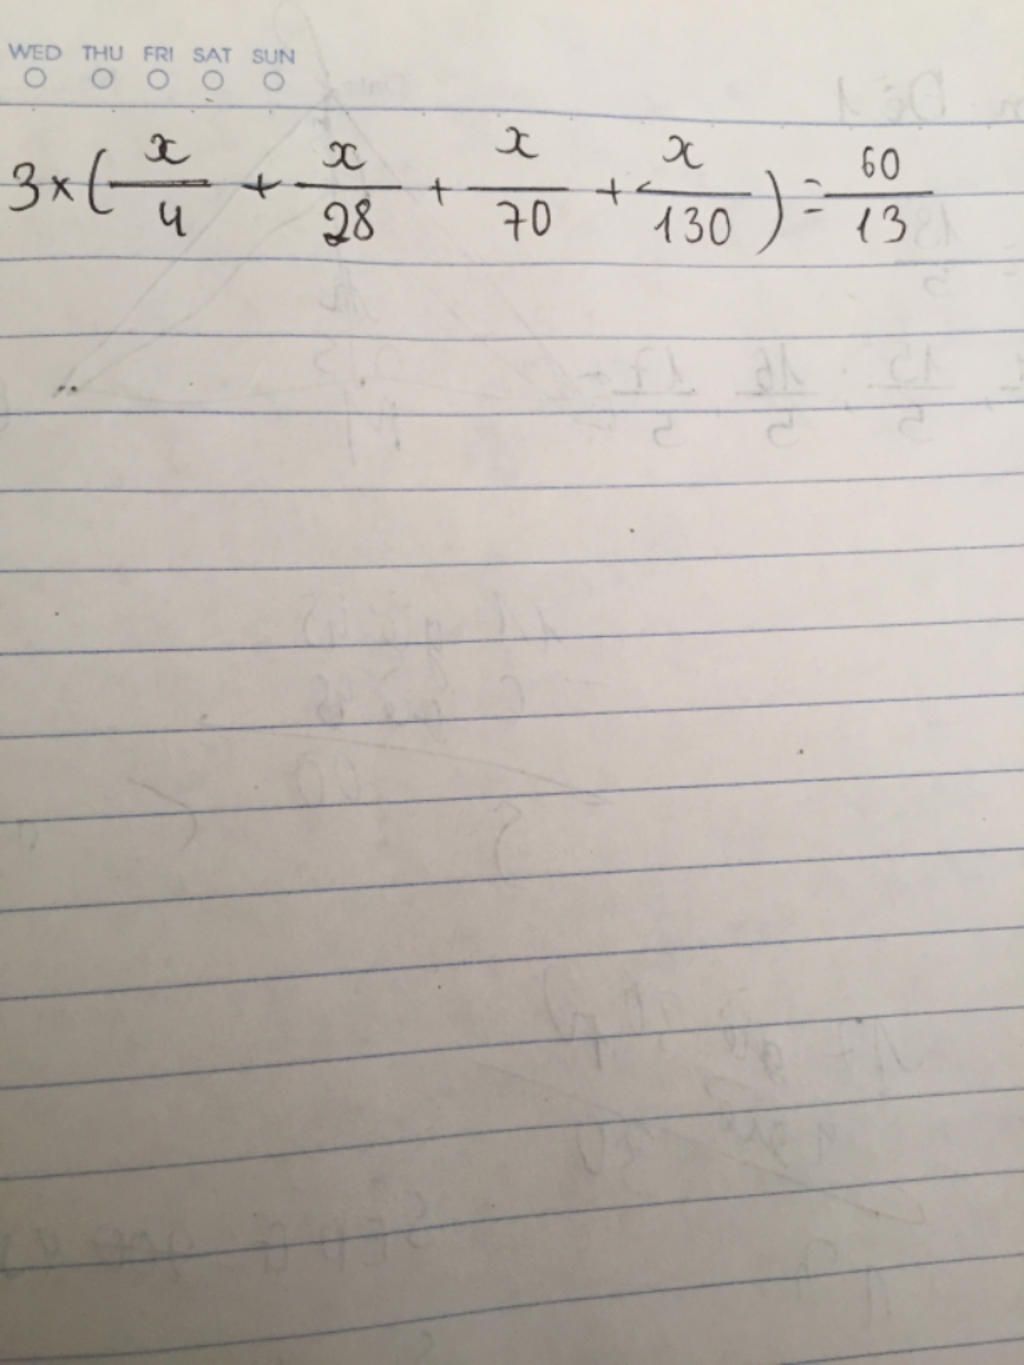 WED THU FRI SAT SUN
3 × ( x/4 + x/28 + x/70 + x/130 ) = 60/13